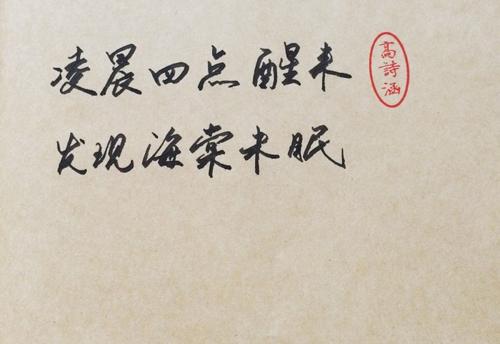 凌晨四点醒来
发现海棠未眠
高詩涵